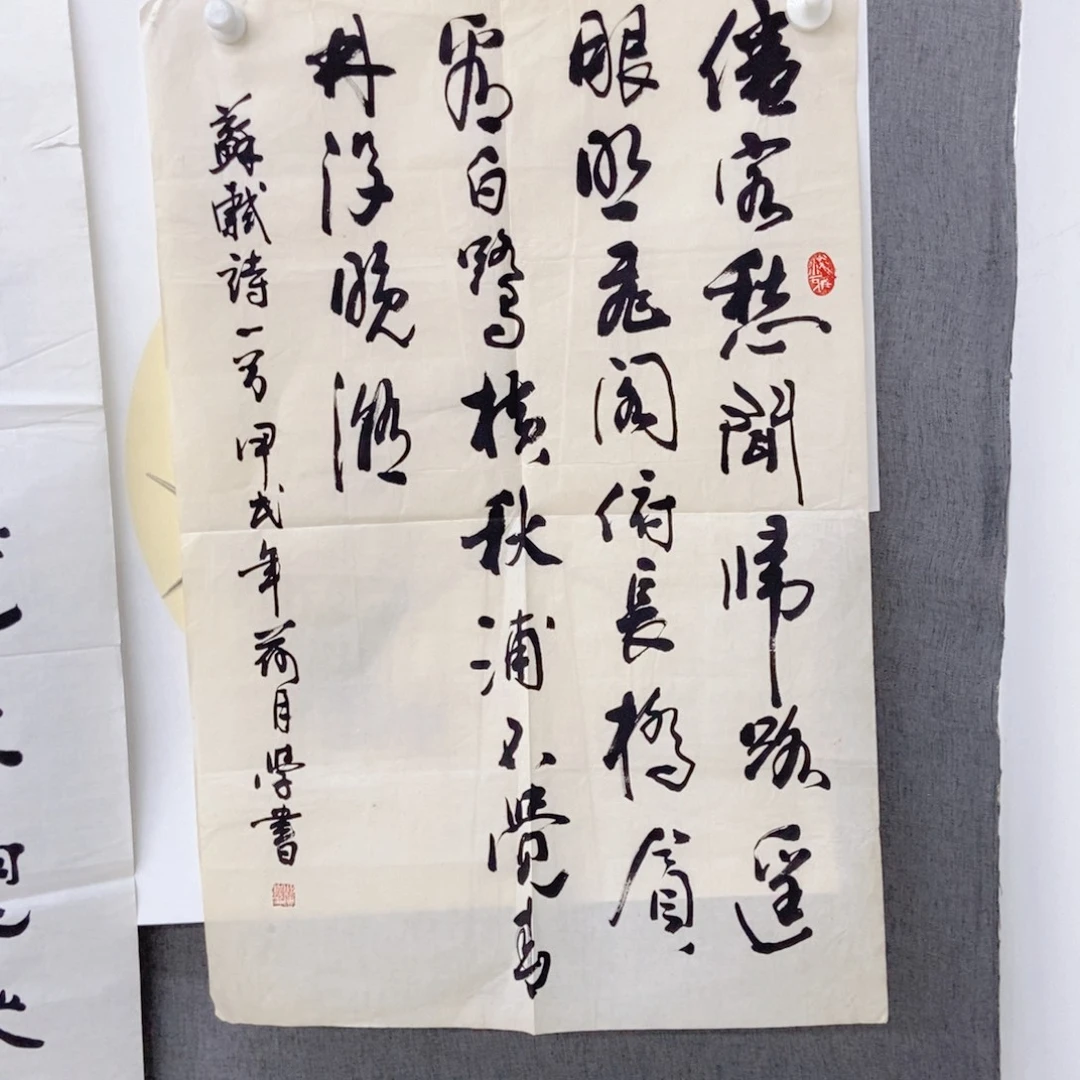 倦客愁聞歸路遥
眼明飛閣俯長橋貪
看白鷺橫秋浦不覺青
林沒晚潮
蘇軾詩一首 甲戌年荷月學書